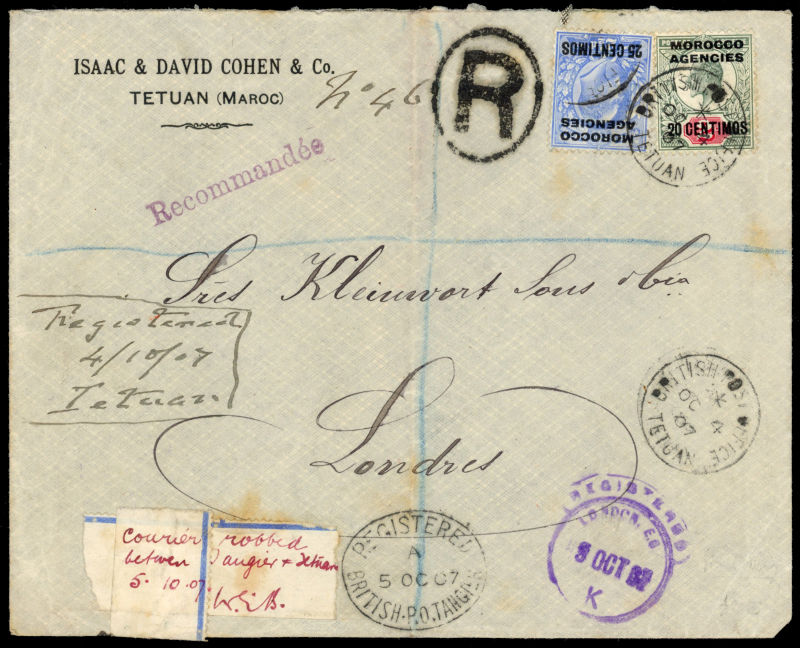 ISAAC & DAVID COHEN & Co.
TETUAN (MAROC)
No 46
R
25 CENTIMOS
MOROCCO
AGENCIES
MOROCCO
AGENCIES
20 CENTIMOS
BRITISH POST OFFICE
TETUAN
Recommandée
Sres Kleinwort Sons & Cia
Londres
Registered
4/10/07
Tetuan
BRITISH POST OFFICE
OC 4
07
TETUAN
courier robbed
between Tangier & Tetuan
5. 10. 07.
REGISTERED
A
5 OC 07
BRITISH.P.O.TANGIER
REGISTERED
LONDON, E.C
OCT 07
K